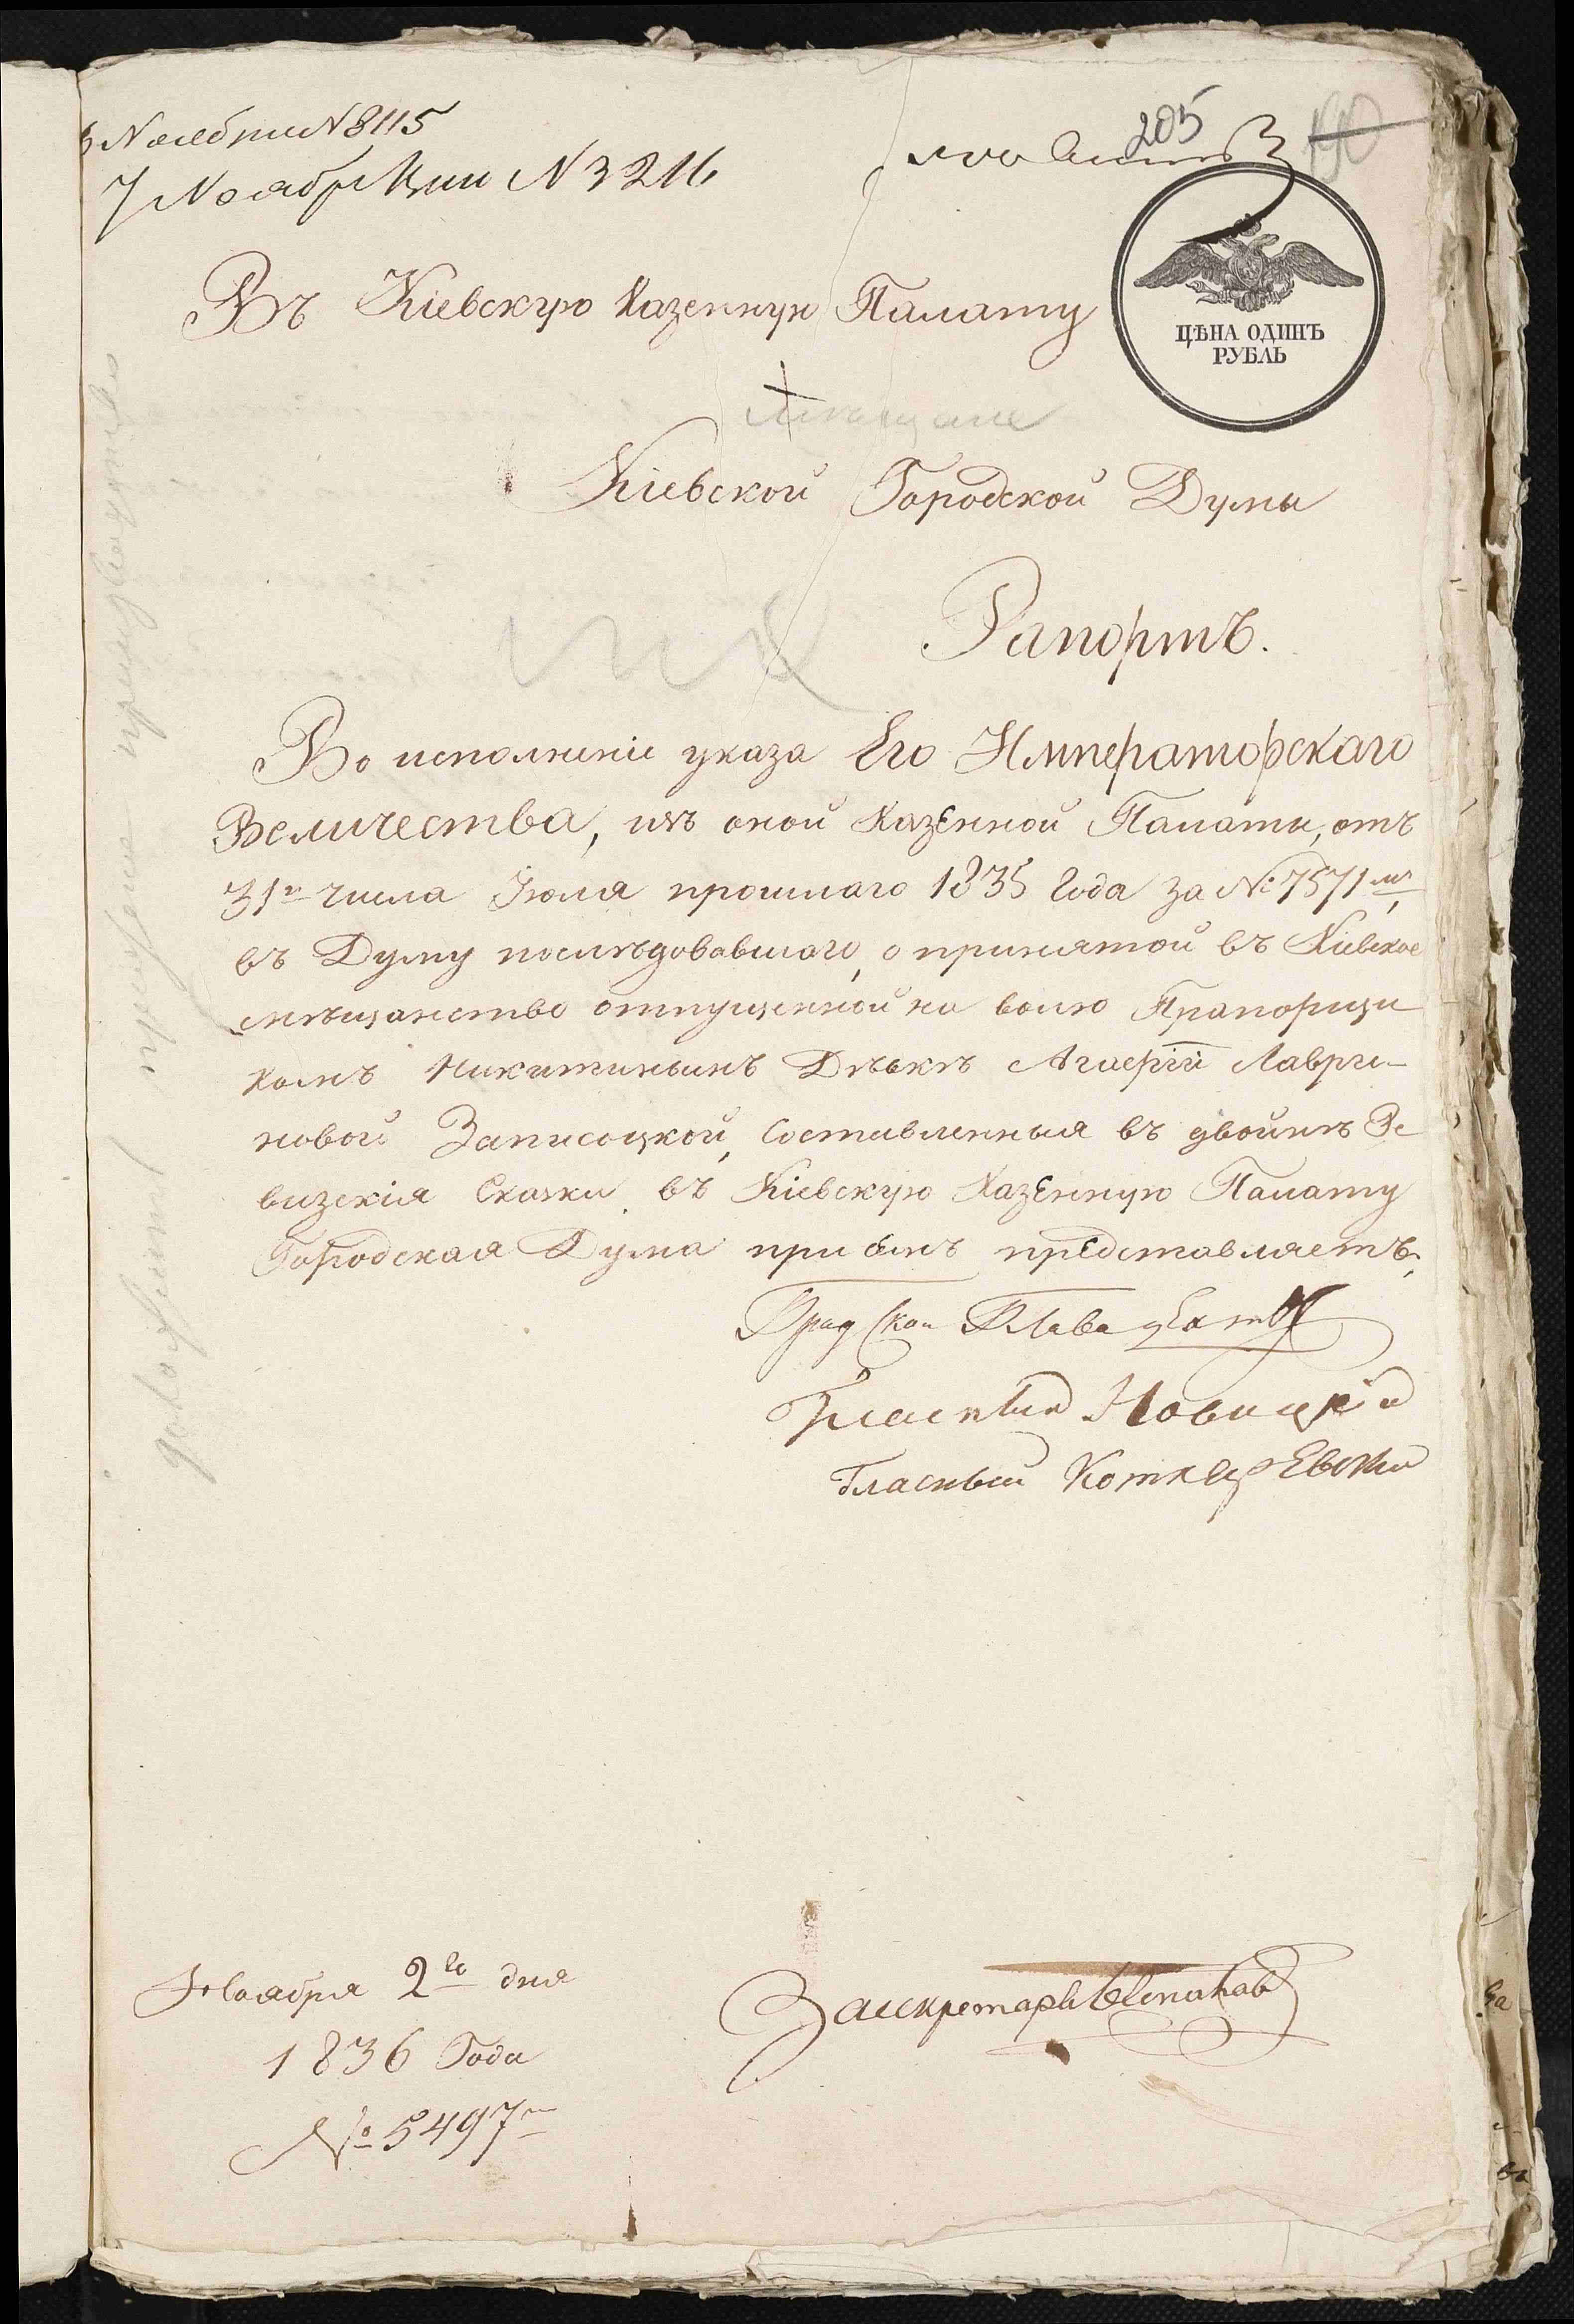 Ноября N 8115
7 Ноября N 3216
205
Въ Кіевскую Казенную Палату
ЦѢНА ОДИНЪ
РУБЛЬ
мещане
Кіевской Городской Думы
Рапортъ.
Во исполненіе указа Его Императорскаго
Величества, изъ оной Казенной Палаты, отъ
31го числа Іюля прошлаго 1835 Года за № 7571мъ,
въ Думу послѣдовавшаго, о принятой въ Кіевское
мѣщанство отпущенной на волю Прапорщи
комъ Никитинымъ Дѣвкѣ Лаври-
новой Записоцкой, составленныя въ двойнѣ Ре
визскія Сказки въ Кіевскую Казенную Палату
Городская Дума при семъ представляетъ.
Градской Глава
Гласный Новицкій
Гласный Котляревскій
Ноября 2го дня
1836 Года
№ 5497